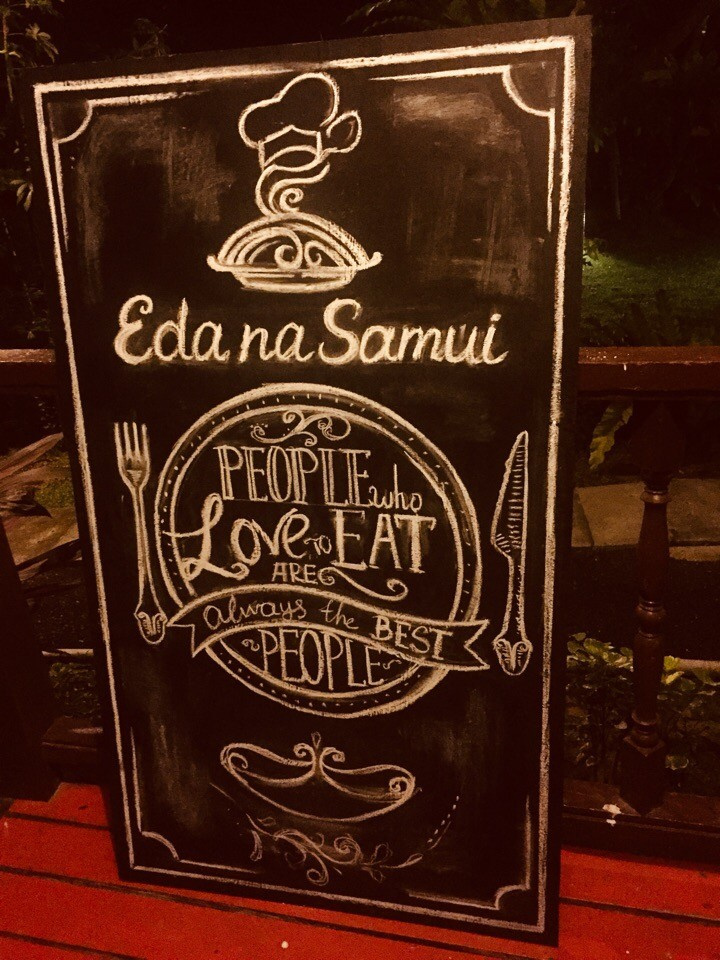 Eda na Samui
PEOPLE who
Love TO EAT
ARE
always the BEST
PEOPLE